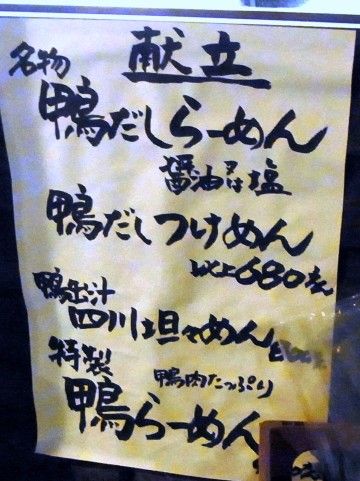 献立
名物
鴨だしらーめん
醤油又は塩
鴨だしつけめん
以上680えん
鴨出汁
四川坦々めん
特製
鴨肉たっぷり
鴨らーめん